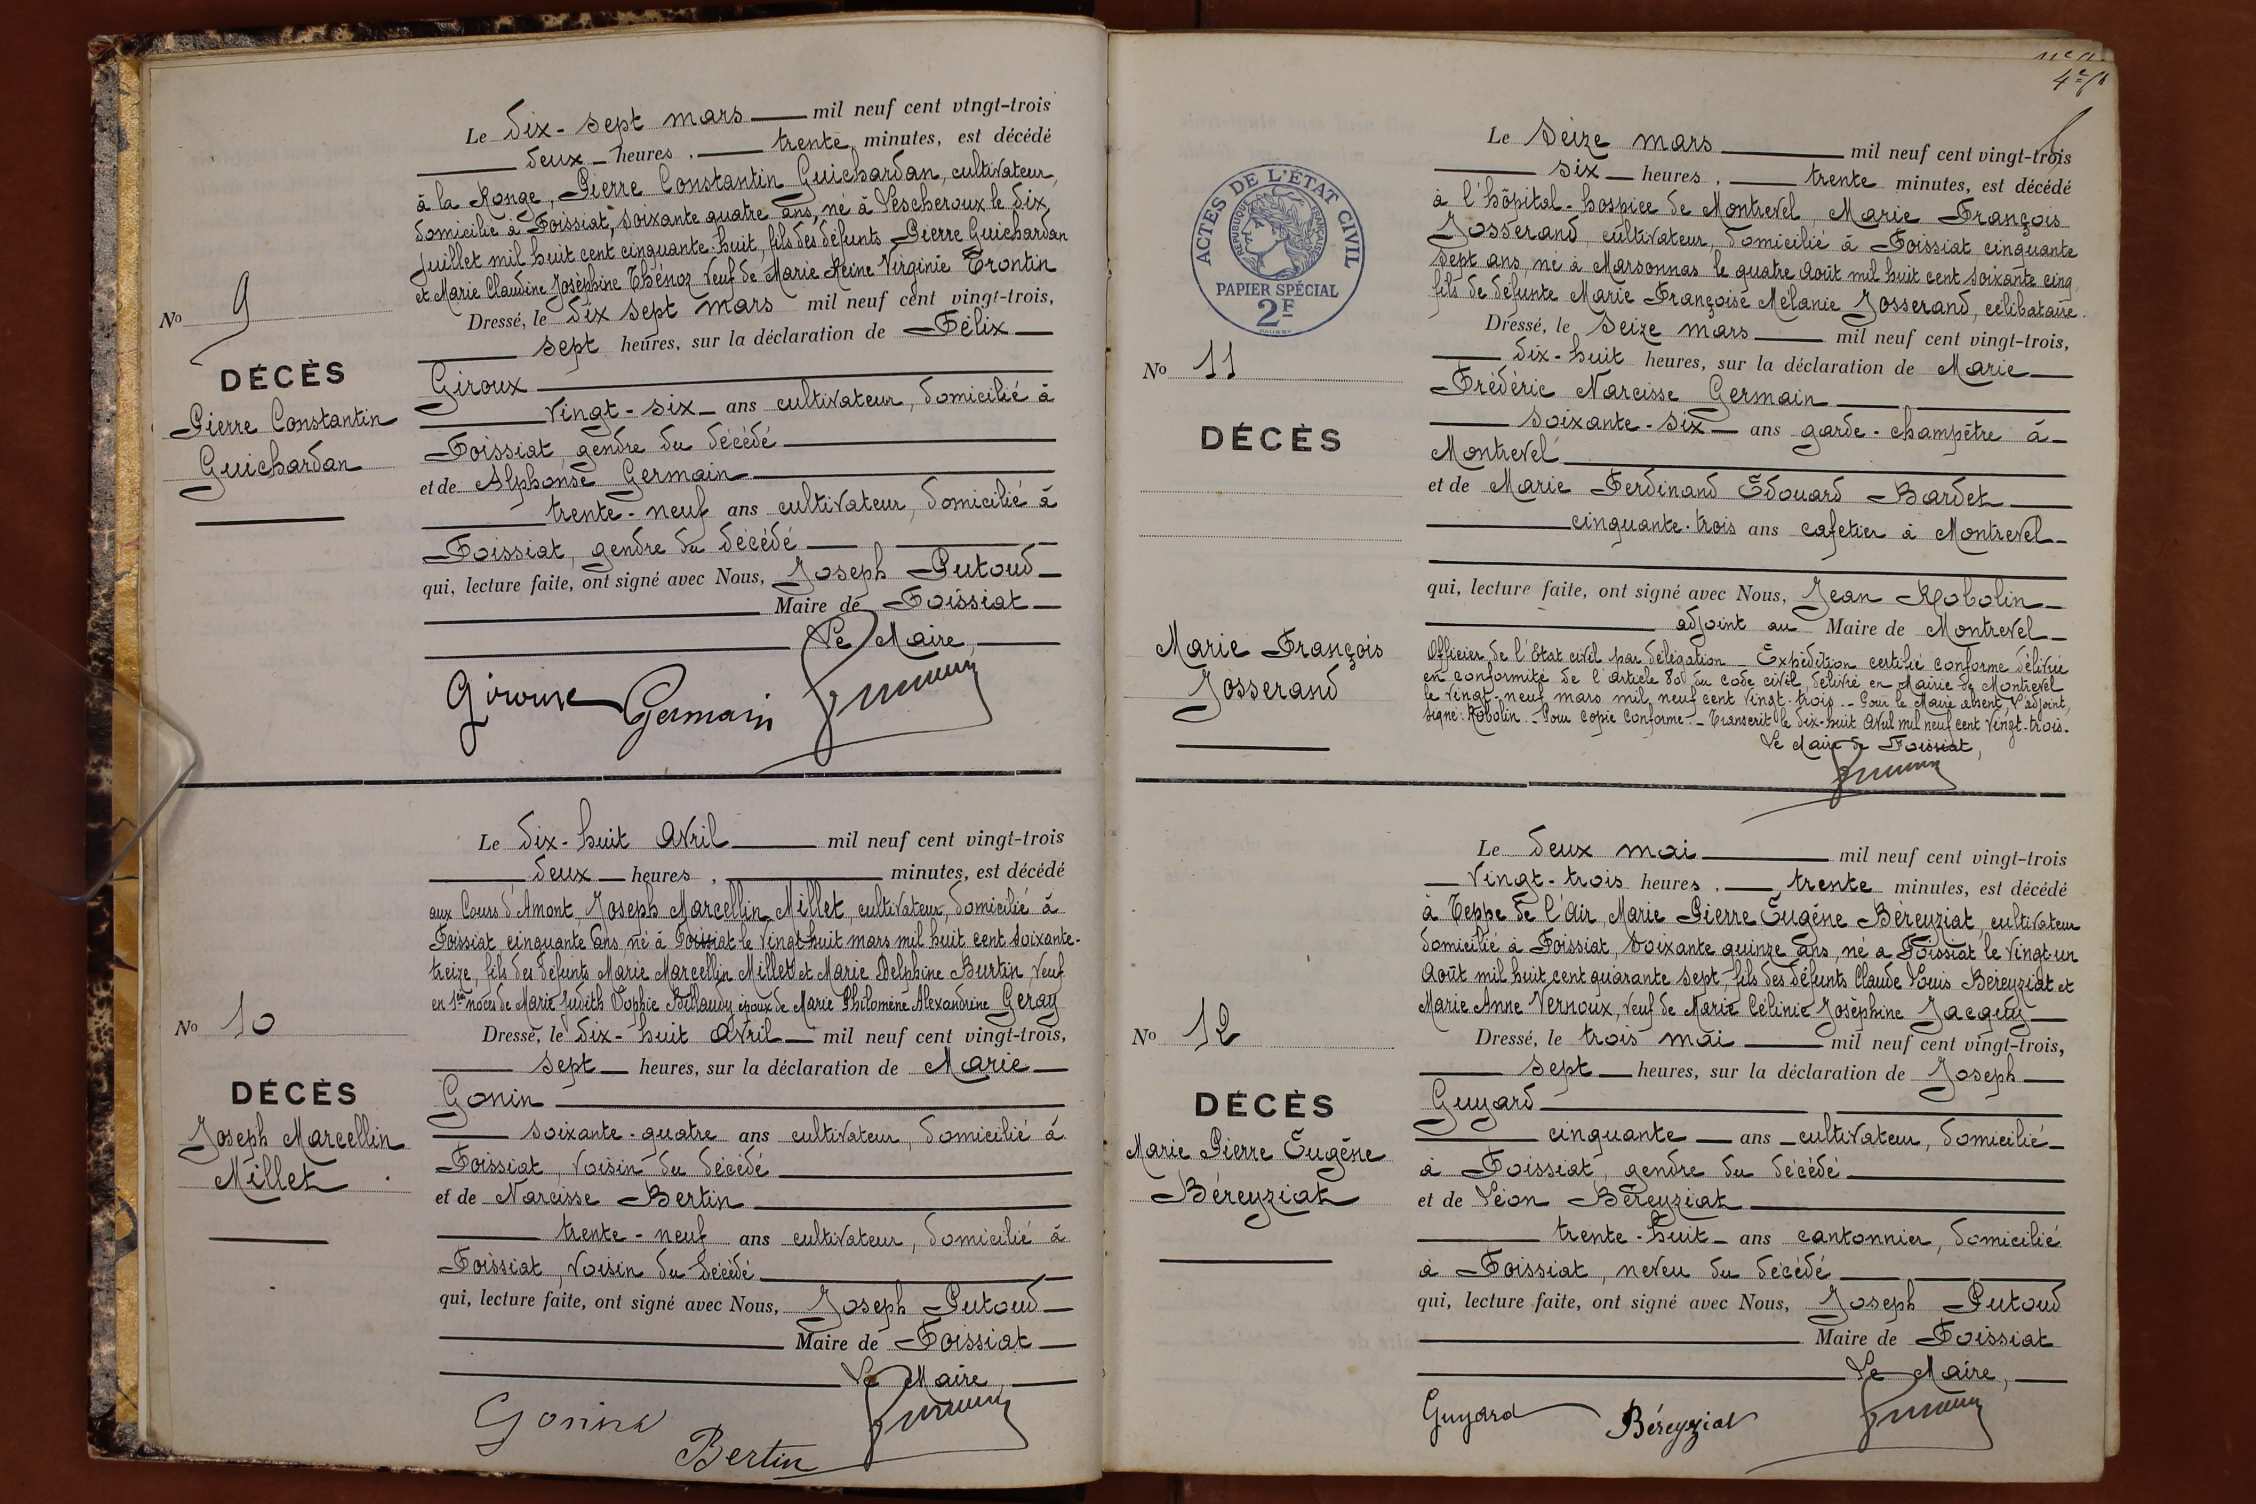 Le dix-sept mars mil neuf cent vingt-trois
deux heures, trente minutes, est décédé
à la Ronge, Pierre Constantin Guichardan, cultivateur,
domicilié à Foissiat, soixante quatre ans, né à Lescheroux le dix
juillet mil huit cent cinquante-huit, fils des défunts Pierre Guichardan
et Marie Claudine Josèphine Thénoz veuf de Marie Reine Virginie Trontin
No 9
Dressé, le dix sept mars mil neuf cent vingt-trois,
sept heures, sur la déclaration de Félix
DÉCÈS
Giroux
Pierre Constantin
Guichardan
vingt-six ans cultivateur, domicilié à
Foissiat, gendre du décédé
et de Alphonse Germain
trente-neuf ans cultivateur, domicilié à
Foissiat, gendre du décédé
qui, lecture faite, ont signé avec Nous, Joseph Putoud
Maire de Foissiat
Le Maire,
Giroux Germain
Le dix-huit avril mil neuf cent vingt-trois
deux heures, minutes, est décédé
aux Cours d'Amont, Joseph Marcellin Millet, cultivateur, domicilié à
Foissiat, cinquante ans, né à Foissiat le vingt huit mars mil huit cent soixante-
treize, fils des défunts Marie Marcellin Millet et Marie Delphine Burtin, veuf
en 1ères noces de Marie Judith Sophie Billaudy époux de Marie Philomène Alexandrine Geray
No 10
Dressé, le dix-huit avril mil neuf cent vingt-trois,
sept heures, sur la déclaration de Marie
DÉCÈS
Gonin
Joseph Marcellin
Millet
soixante-quatre ans cultivateur, domicilié à
Foissiat, voisin du décédé
et de Narcisse Bertin
trente-neuf ans cultivateur, domicilié à
Foissiat, voisin du décédé
qui, lecture faite, ont signé avec Nous, Joseph Putoud
Maire de Foissiat
Le Maire,
Gonin
Bertin
ACTES DE L'ÉTAT CIVIL
RÉPUBLIQUE FRANÇAISE
PAPIER SPÉCIAL
2F
Le seize mars mil neuf cent vingt-trois
six heures, trente minutes, est décédé
à l'hôpital-hospice de Montrevel, Marie François
Josserand, cultivateur, domicilié à Foissiat, cinquante
sept ans, né à Marsonnas le quatre août mil huit cent soixante cinq,
fils de défunte Marie Françoise Mélanie Josserand, célibataire.
Dressé, le seize mars mil neuf cent vingt-trois,
No 11
dix-huit heures, sur la déclaration de Marie
Frédéric Narcisse Germain
DÉCÈS
soixante-six ans garde-champêtre à
Montrevel
et de Marie Ferdinand Edouard Bardet
cinquante-trois ans cafetier à Montrevel
qui, lecture faite, ont signé avec Nous, Jean Robolin
adjoint au Maire de Montrevel
Marie François
Josserand
Officier de l'Etat civil par délégation - Expédition certifié conforme délivrée
en conformité de l'article 80 du code civil, délivré en Mairie de Montrevel
le vingt-neuf mars mil neuf cent vingt-trois - Pour le Maire absent, L'adjoint,
signé: Robolin. - Pour copie conforme - Transcrit le dix-huit avril mil neuf cent vingt-trois.
Le Maire de Foissiat,
Le deux mai mil neuf cent vingt-trois
vingt-trois heures, trente minutes, est décédé
à Teppe de l'air, Marie Pierre Eugéne Béreyziat, cultivateur
domicilié à Foissiat, soixante quinze ans, né à Foissiat le vingt-un
août mil huit cent quarante sept, fils des défunts Claude Louis Béreyziat et
Marie Anne Vernoux, veuf de Marie Célinie Josèphine Jacquy
No 12
Dressé, le trois mai mil neuf cent vingt-trois,
sept heures, sur la déclaration de Joseph
DÉCÈS
Guyard
Marie Pierre Eugéne
Béreyziat
cinquante ans cultivateur, domicilié
à Foissiat, gendre du décédé
et de Léon Béreyziat
trente-huit ans cantonnier, domicilié
à Foissiat, neveu du décédé
qui, lecture faite, ont signé avec Nous, Joseph Putoud
Maire de Foissiat
Le Maire,
Guyard Béreyziat